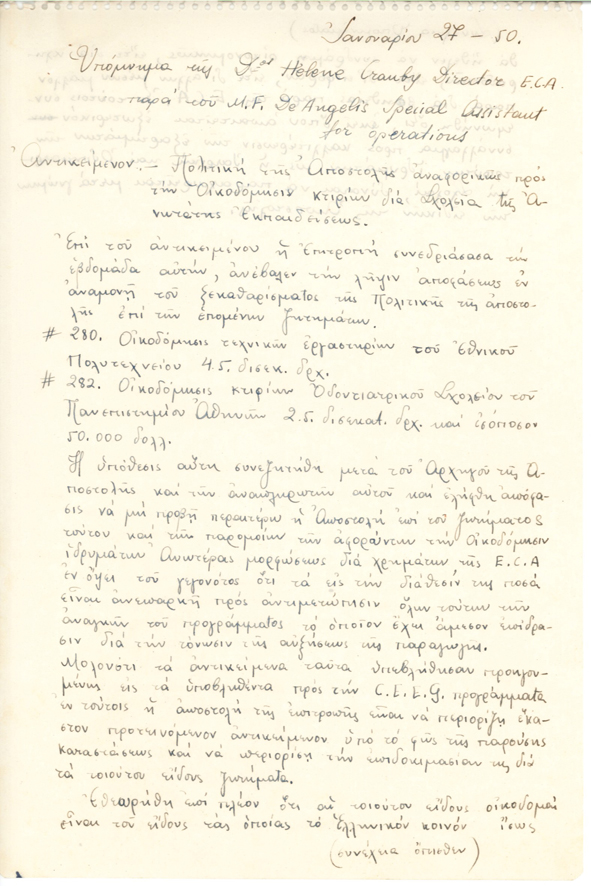 Ἰανουαρίου 27 - 50.
Ὑπόμνημα τῆς Dos Helene Granby Director E.C.A.
παρά τοῦ M.F. De Angelis Special Assistant
for operations
Ἀντικείμενον. - Πολιτική τῆς Ἀποστολῆς ἀναφορικῶς πρός
τήν Οἰκοδόμησιν κτιρίων διά Σχολεῖα τῆς Ἀ-
νωτάτης Ἐκπαιδεύσεως.
Ἐπί τοῦ ἀντικειμένου ἡ Ἐπιτροπή συνεδριάσασα τήν
ἑβδομάδα αὐτήν, ἀνέβαλεν τήν λῆψιν ἀποφάσεως ἐν
ἀναμονῇ τοῦ ξεκαθαρίσματος τῆς Πολιτικῆς τῆς ἀποστο-
λῆς ἐπί τῶν ἑπομένων ζητημάτων.
# 280. Οἰκοδόμησις τεχνικῶν ἐργαστηρίων τοῦ Ἐθνικοῦ
Πολυτεχνείου 4.5. δισεκ. δρχ.
# 282. Οἰκοδόμησις κτιρίων Ὀδοντιατρικοῦ Σχολείου τοῦ
Πανεπιστημίου Ἀθηνῶν 2.5. δισεκατ. δρχ. καί ἐσόποσον
50.000 δολλ.
Ἡ ὑπόθεσις αὕτη συνεζητήθη μετά τοῦ Ἀρχηγοῦ τῆς Ἀ-
ποστολῆς καί τῶν ἀναπληρωτῶν αὐτοῦ καί ἐλήφθη ἀπόφα-
σις νά μή προβῇ περαιτέρω ἡ Ἀποστολή ἐπί τοῦ ζητήματος
τούτου καί τῶν παρομοίων τῶν ἀφορώντων τήν Οἰκοδόμησιν
ἱδρυμάτων Ἀνωτέρας μορφώσεως διά χρημάτων τῆς E.C.A
ἐν ὄψει τοῦ γεγονότος ὅτι τά εἰς τήν διάθεσίν της ποσά
εἶναι ἀνεπαρκῆ πρός ἀντιμετώπισιν ὅλων τούτων τῶν
ἀναγκῶν τοῦ προγράμματος τό ὁποῖον ἔχει ἄμεσον ἐπίδρα-
σιν διά τήν τόνωσιν τῆς αὐξήσεως τῆς παραγωγῆς.
Μολονότι τά ἀντικείμενα ταῦτα ὑπεβλήθησαν προηγου-
μένως εἰς τά ὑποβληθέντα πρός τήν C.E.E.G. προγράμματα
ἐν τούτοις ἡ ἀποστολή τῆς ἐπιτροπῆς εἶναι νά περιορίζῃ ἕκα-
στον προτεινόμενον ἀντικείμενον ὑπό τό φῶς τῆς παρούσης
καταστάσεως καί νά περιορίσῃ τήν ἐπιδοκιμασίαν της διά
τά τοιούτου εἴδους ζητήματα.
Ἐθεωρήθη ἐπί πλέον ὅτι αἱ τοιούτου εἴδους οἰκοδομαί
εἶναι τοῦ εἴδους τάς ὁποίας τό Ἑλληνικόν κοινόν ἴσως
(συνέχεια ὄπισθεν)